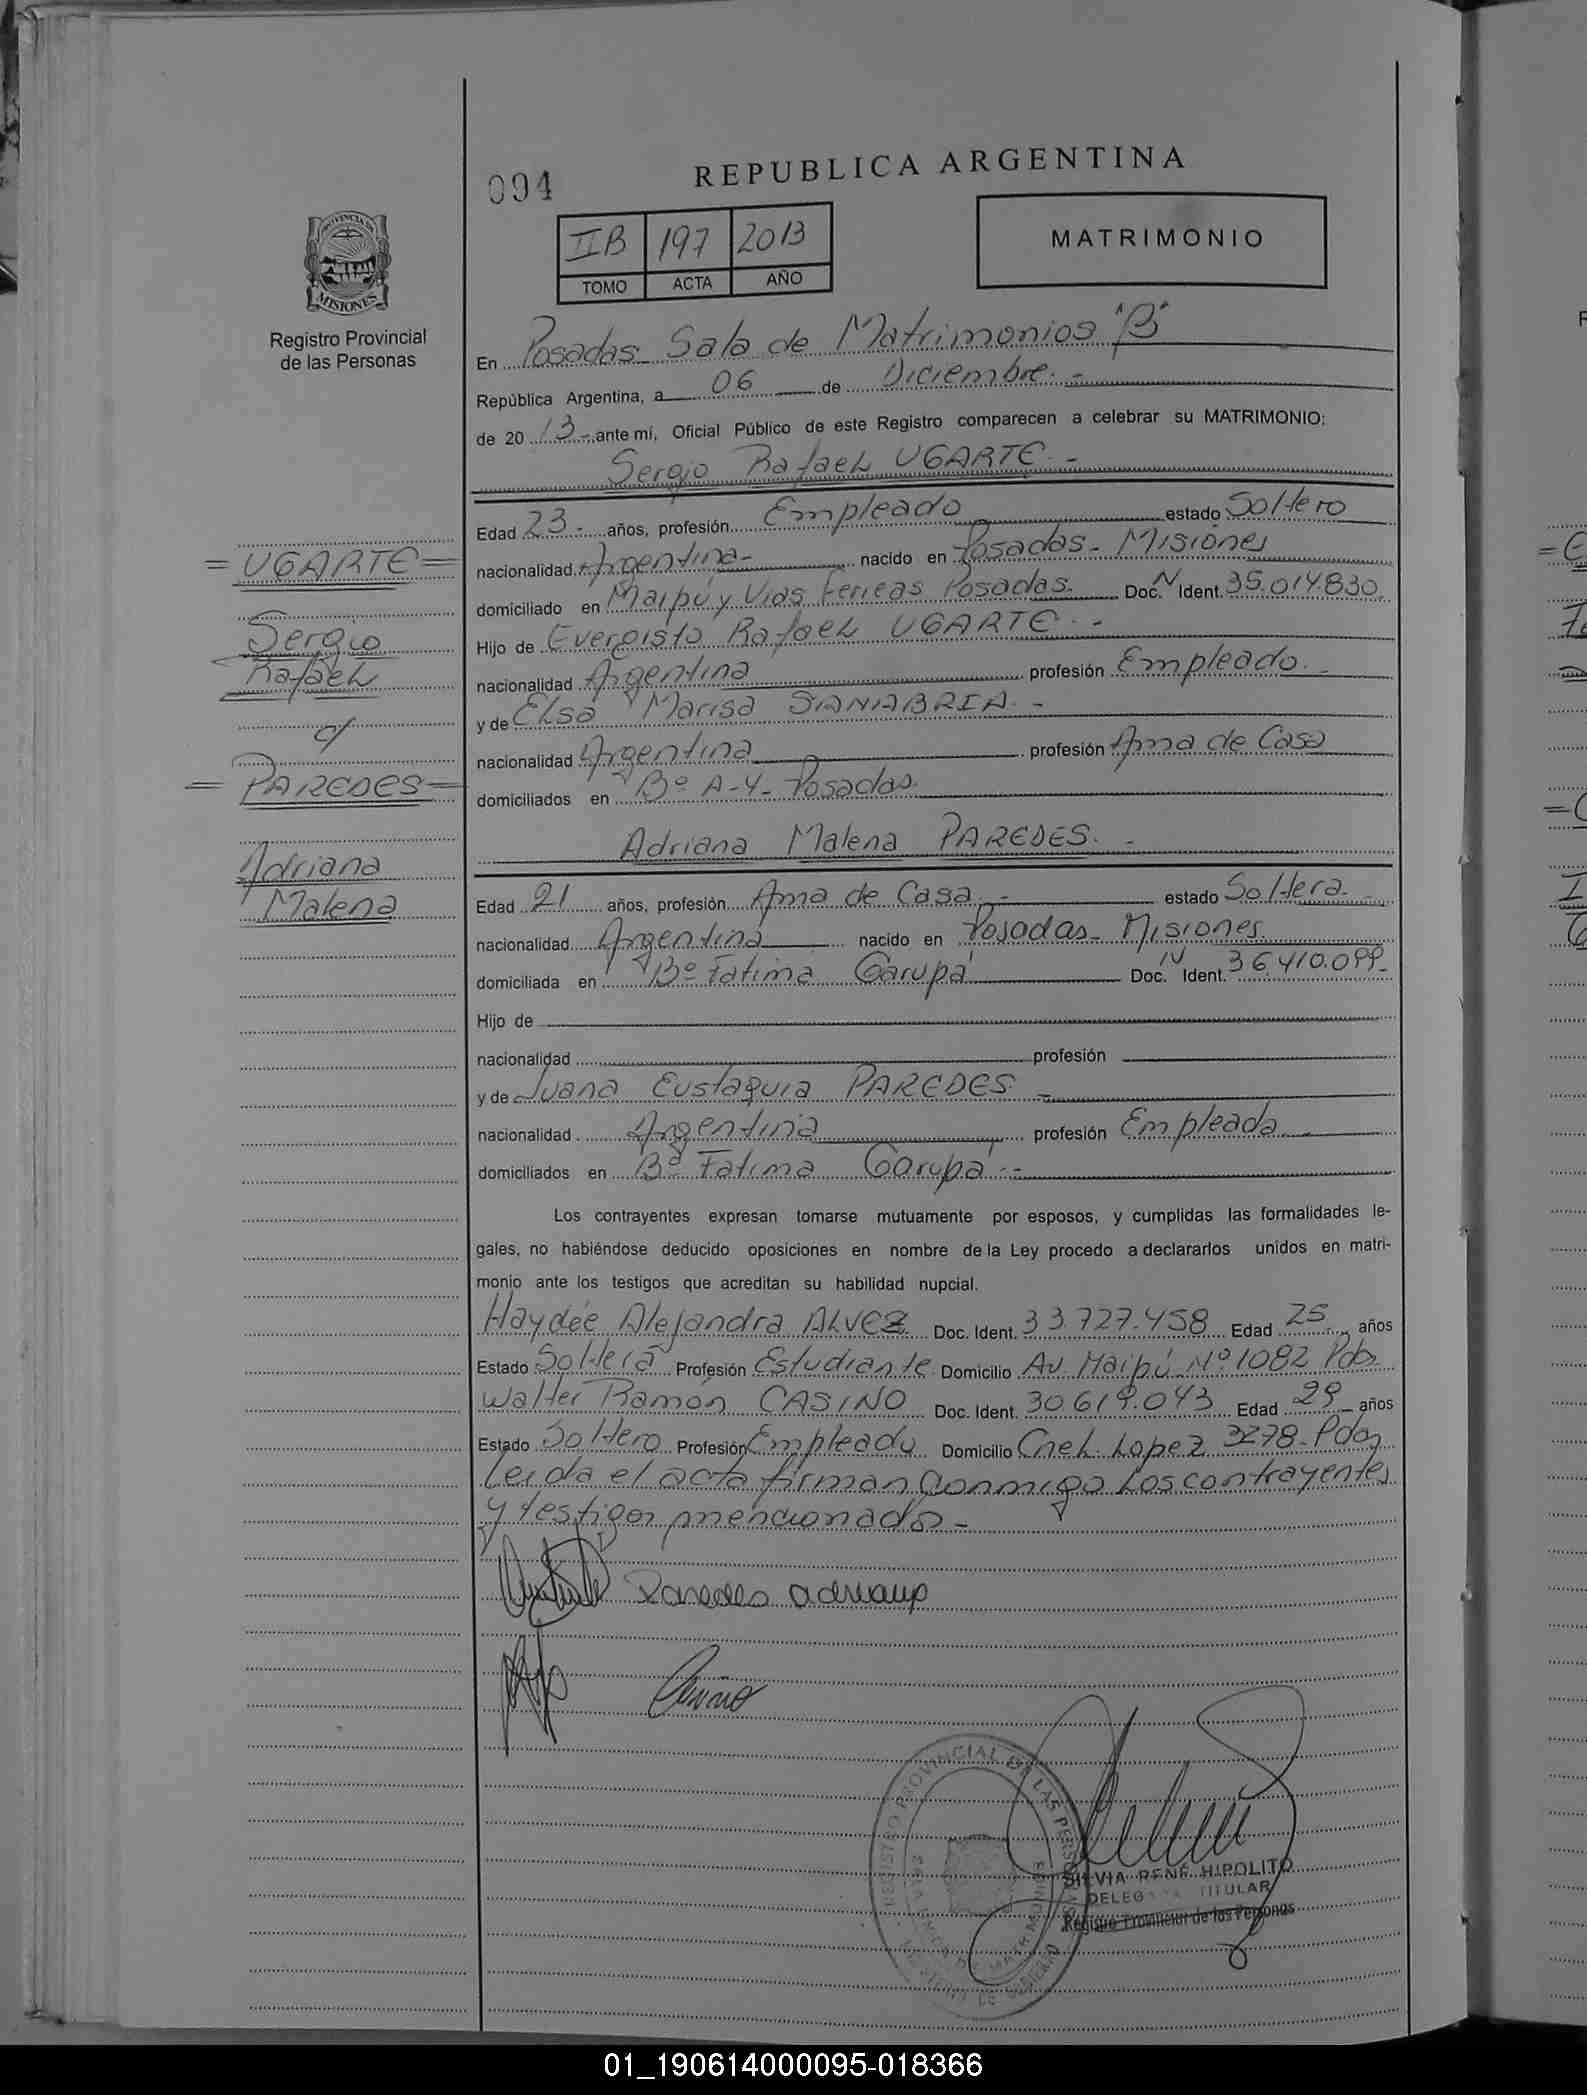 094
REPUBLICA ARGENTINA
IIB 197 2013
TOMO ACTA AÑO
MATRIMONIO
PROVINCIA DE
MISIONES
Registro Provincial
de las Personas
En Posadas Sala de Matrimonios "B"
República Argentina, a 06 de Diciembre.-
de 2013-ante mí, Oficial Público de este Registro comparecen a celebrar su MATRIMONIO:
Sergio Rafael UGARTE.-
Edad 23- años, profesión Empleado estado Soltero
nacionalidad Argentina- nacido en Posadas- Misiones
domiciliado en Maipú y Vias Ferreas Posadas. Doc. N Ident. 35.014.830.
Hijo de Evergisto Rafael UGARTE.-
nacionalidad Argentina profesión Empleado.-
y de Elsa Marisa SANABRIA.-
nacionalidad Argentina profesión Ama de Casa
domiciliados en Bº A-4- Posadas.
Adriana Malena PAREDES.-
Edad 21 años, profesión Ama de Casa.- estado Soltera.-
nacionalidad Argentina nacido en Posadas- Misiones.
domiciliada en Bº Fatima Garupá Doc. N Ident. 36.410.099-
Hijo de
nacionalidad profesión
y de Juana Eustaquia PAREDES.-
nacionalidad Argentina profesión Empleada.
domiciliados en Bº Fatima Garupá.-
Los contrayentes expresan tomarse mutuamente por esposos, y cumplidas las formalidades le-
gales, no habiéndose deducido oposiciones en nombre de la Ley procedo a declararlos unidos en matri-
monio ante los testigos que acreditan su habilidad nupcial.
Haydée Alejandra ALVEZ Doc. Ident. 33.727.458 Edad 25 años
Estado Soltera Profesión Estudiante Domicilio Av. Maipú Nº 1082 Pdas
Walter Ramón CASINO Doc. Ident. 30.619.043 Edad 29 años
Estado Soltero Profesión Empleado Domicilio Cnel. Lopez 3278- Pdas
Leida el acta firman conmigo los contrayentes
y testigos mencionados-
= UGARTE =
Sergio
Rafael
c/
= PAREDES =
Adriana
Malena
Paredes Adriana
Casino
REGISTRO PROVINCIAL DE LAS PERSONAS
SILVIA RENÉ HIPOLITO
DELEGADA TITULAR
Registro Provincial de las Personas
01_190614000095-018366